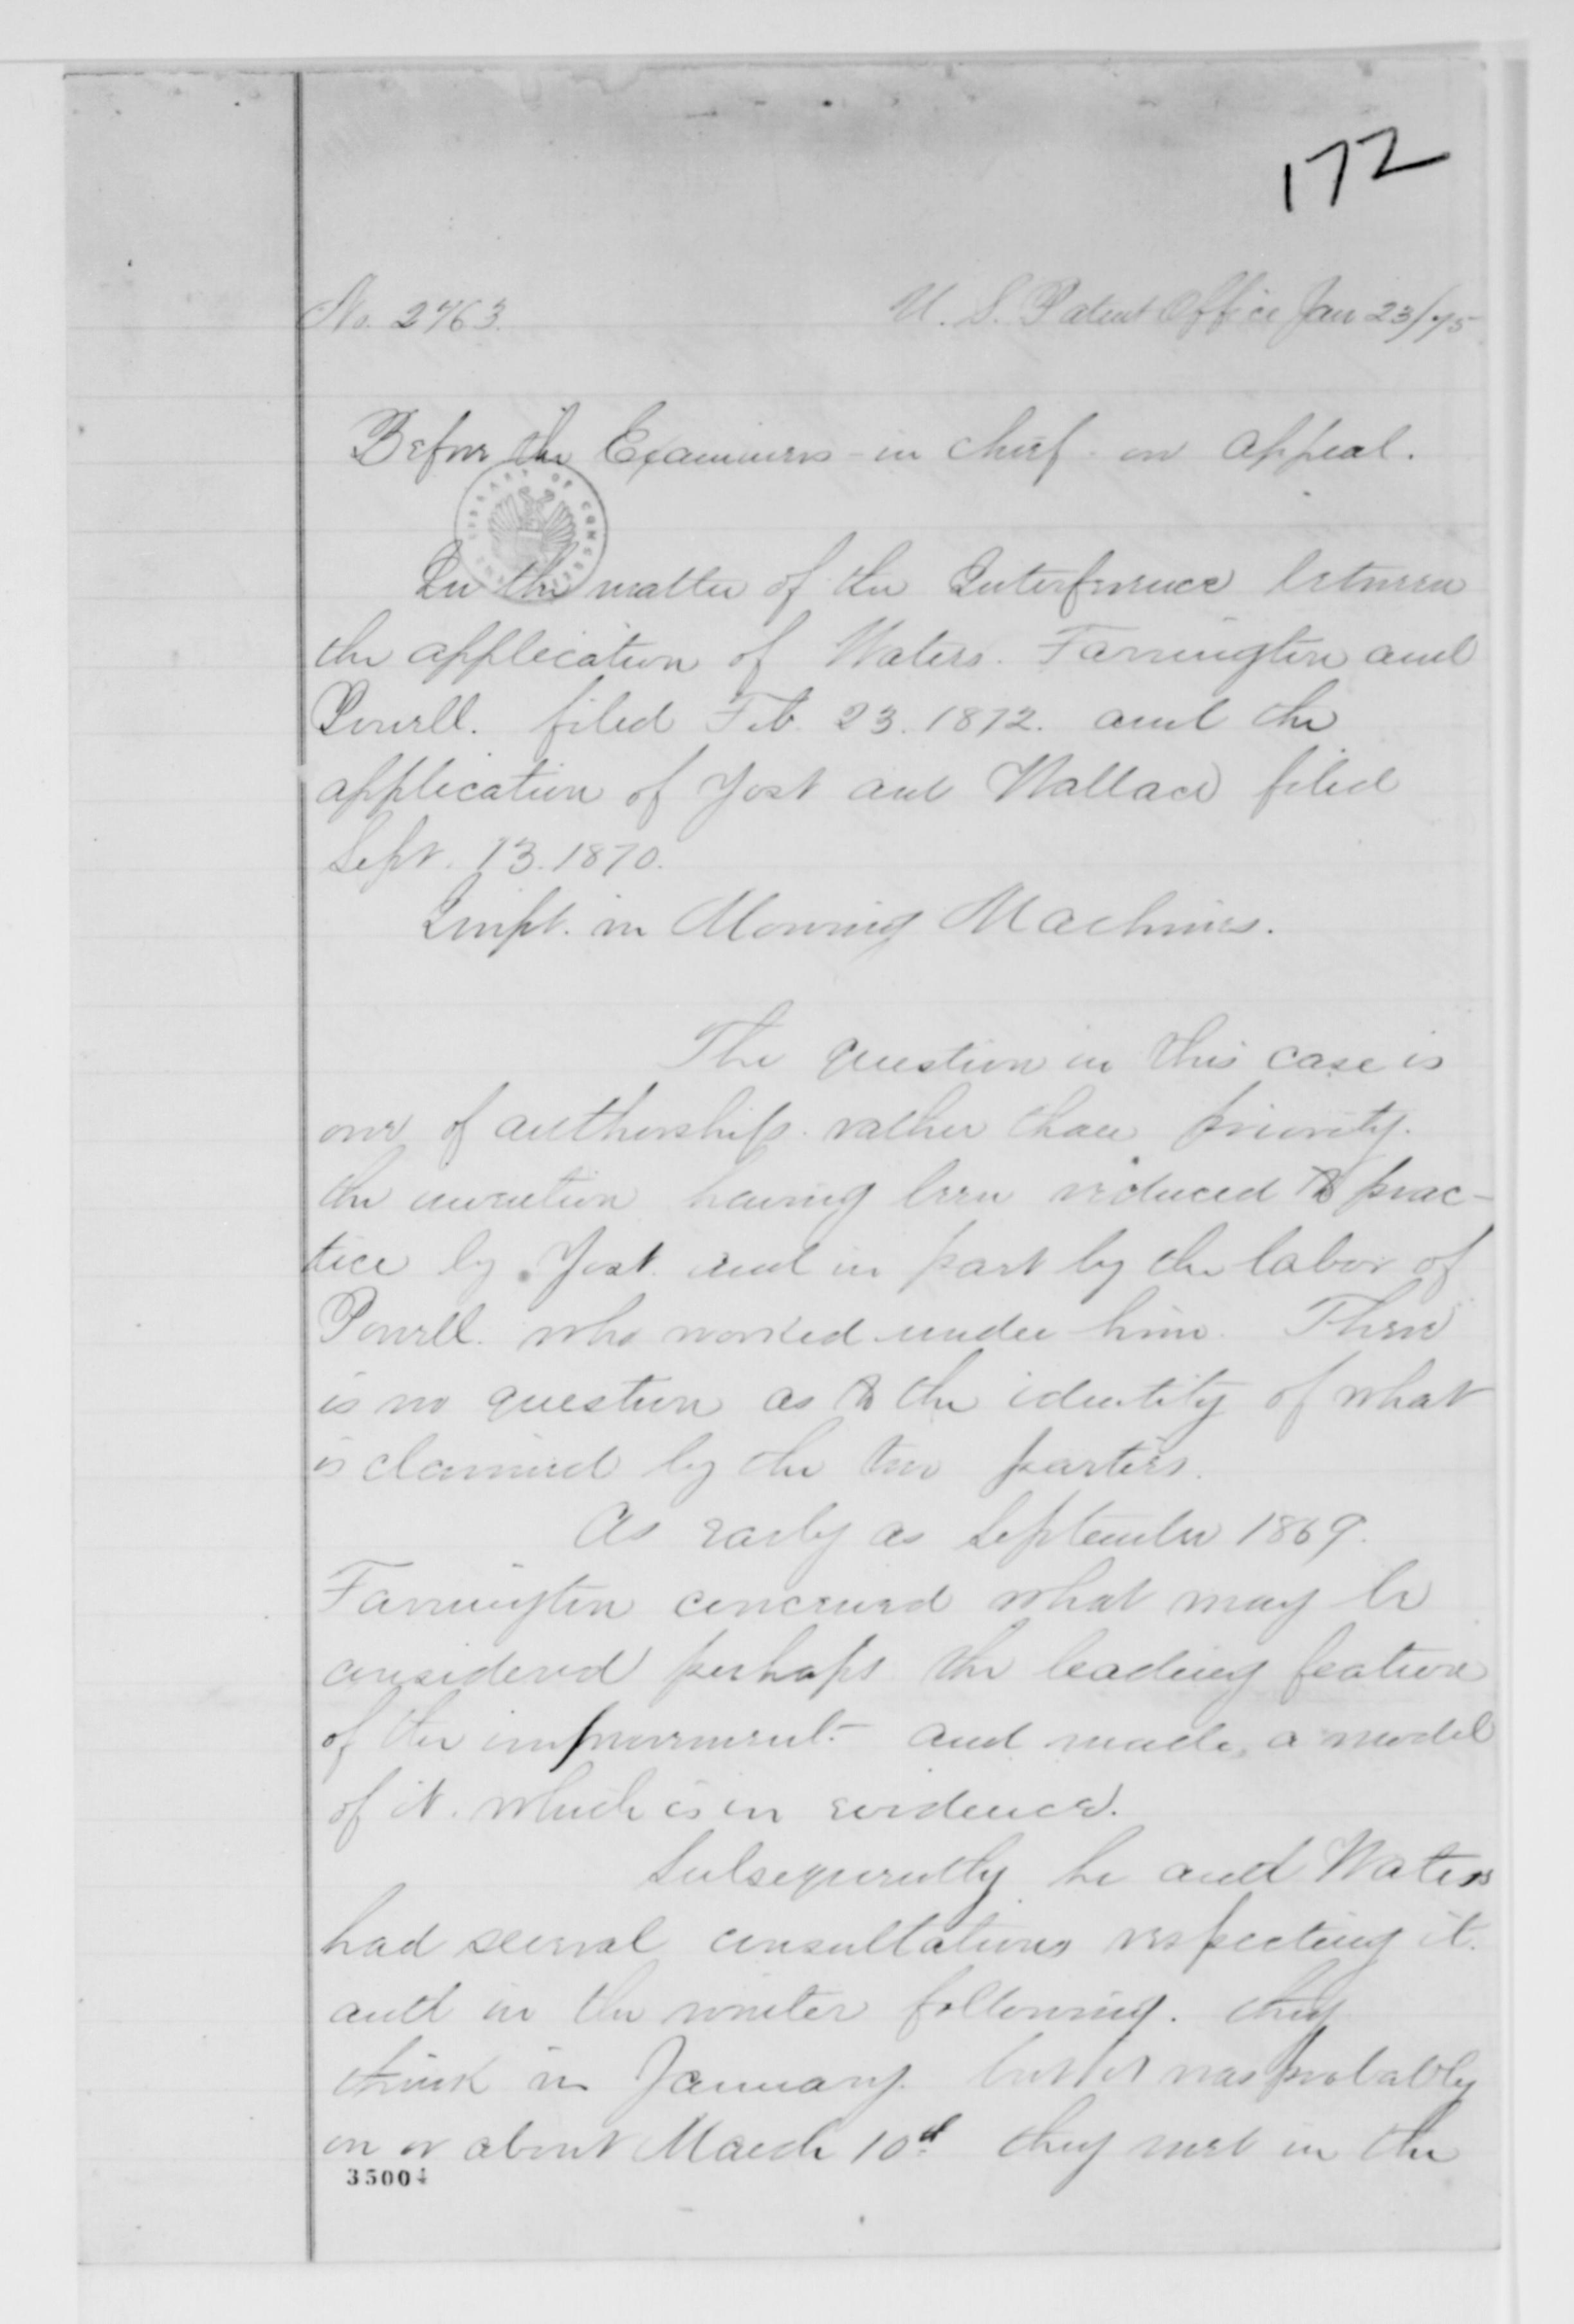 172
No. 2763.
U. S. Patent Office Jan 23/75
Before the Examiners-in chief on appeal.
LIBRARY OF CONGRESS
In the matter of the Interference between
the application of Waters. Farrington and
Powell. filed Feb. 23. 1872. and the
application of Yost and Wallace filed
Sept. 13. 1870.
Impt. in Mowing Machines.
The question in this case is
one of authorship. rather than priority.
the invention having been reduced to prac-
tice by Yost. and in part by the labor of
Powell. who worked under him. There
is no question as to the identity of what
is claimed by the two parties.
As early as September 1869.
Farrington conceived what may be
considered perhaps the leading feature
of the improvement - and made a model
of it. which is in evidence.
Subsequently he and Waters
had several consultations respecting it.
and in the winter following. they
think in January. but it was probably
on or about March 10th they met in the
35004